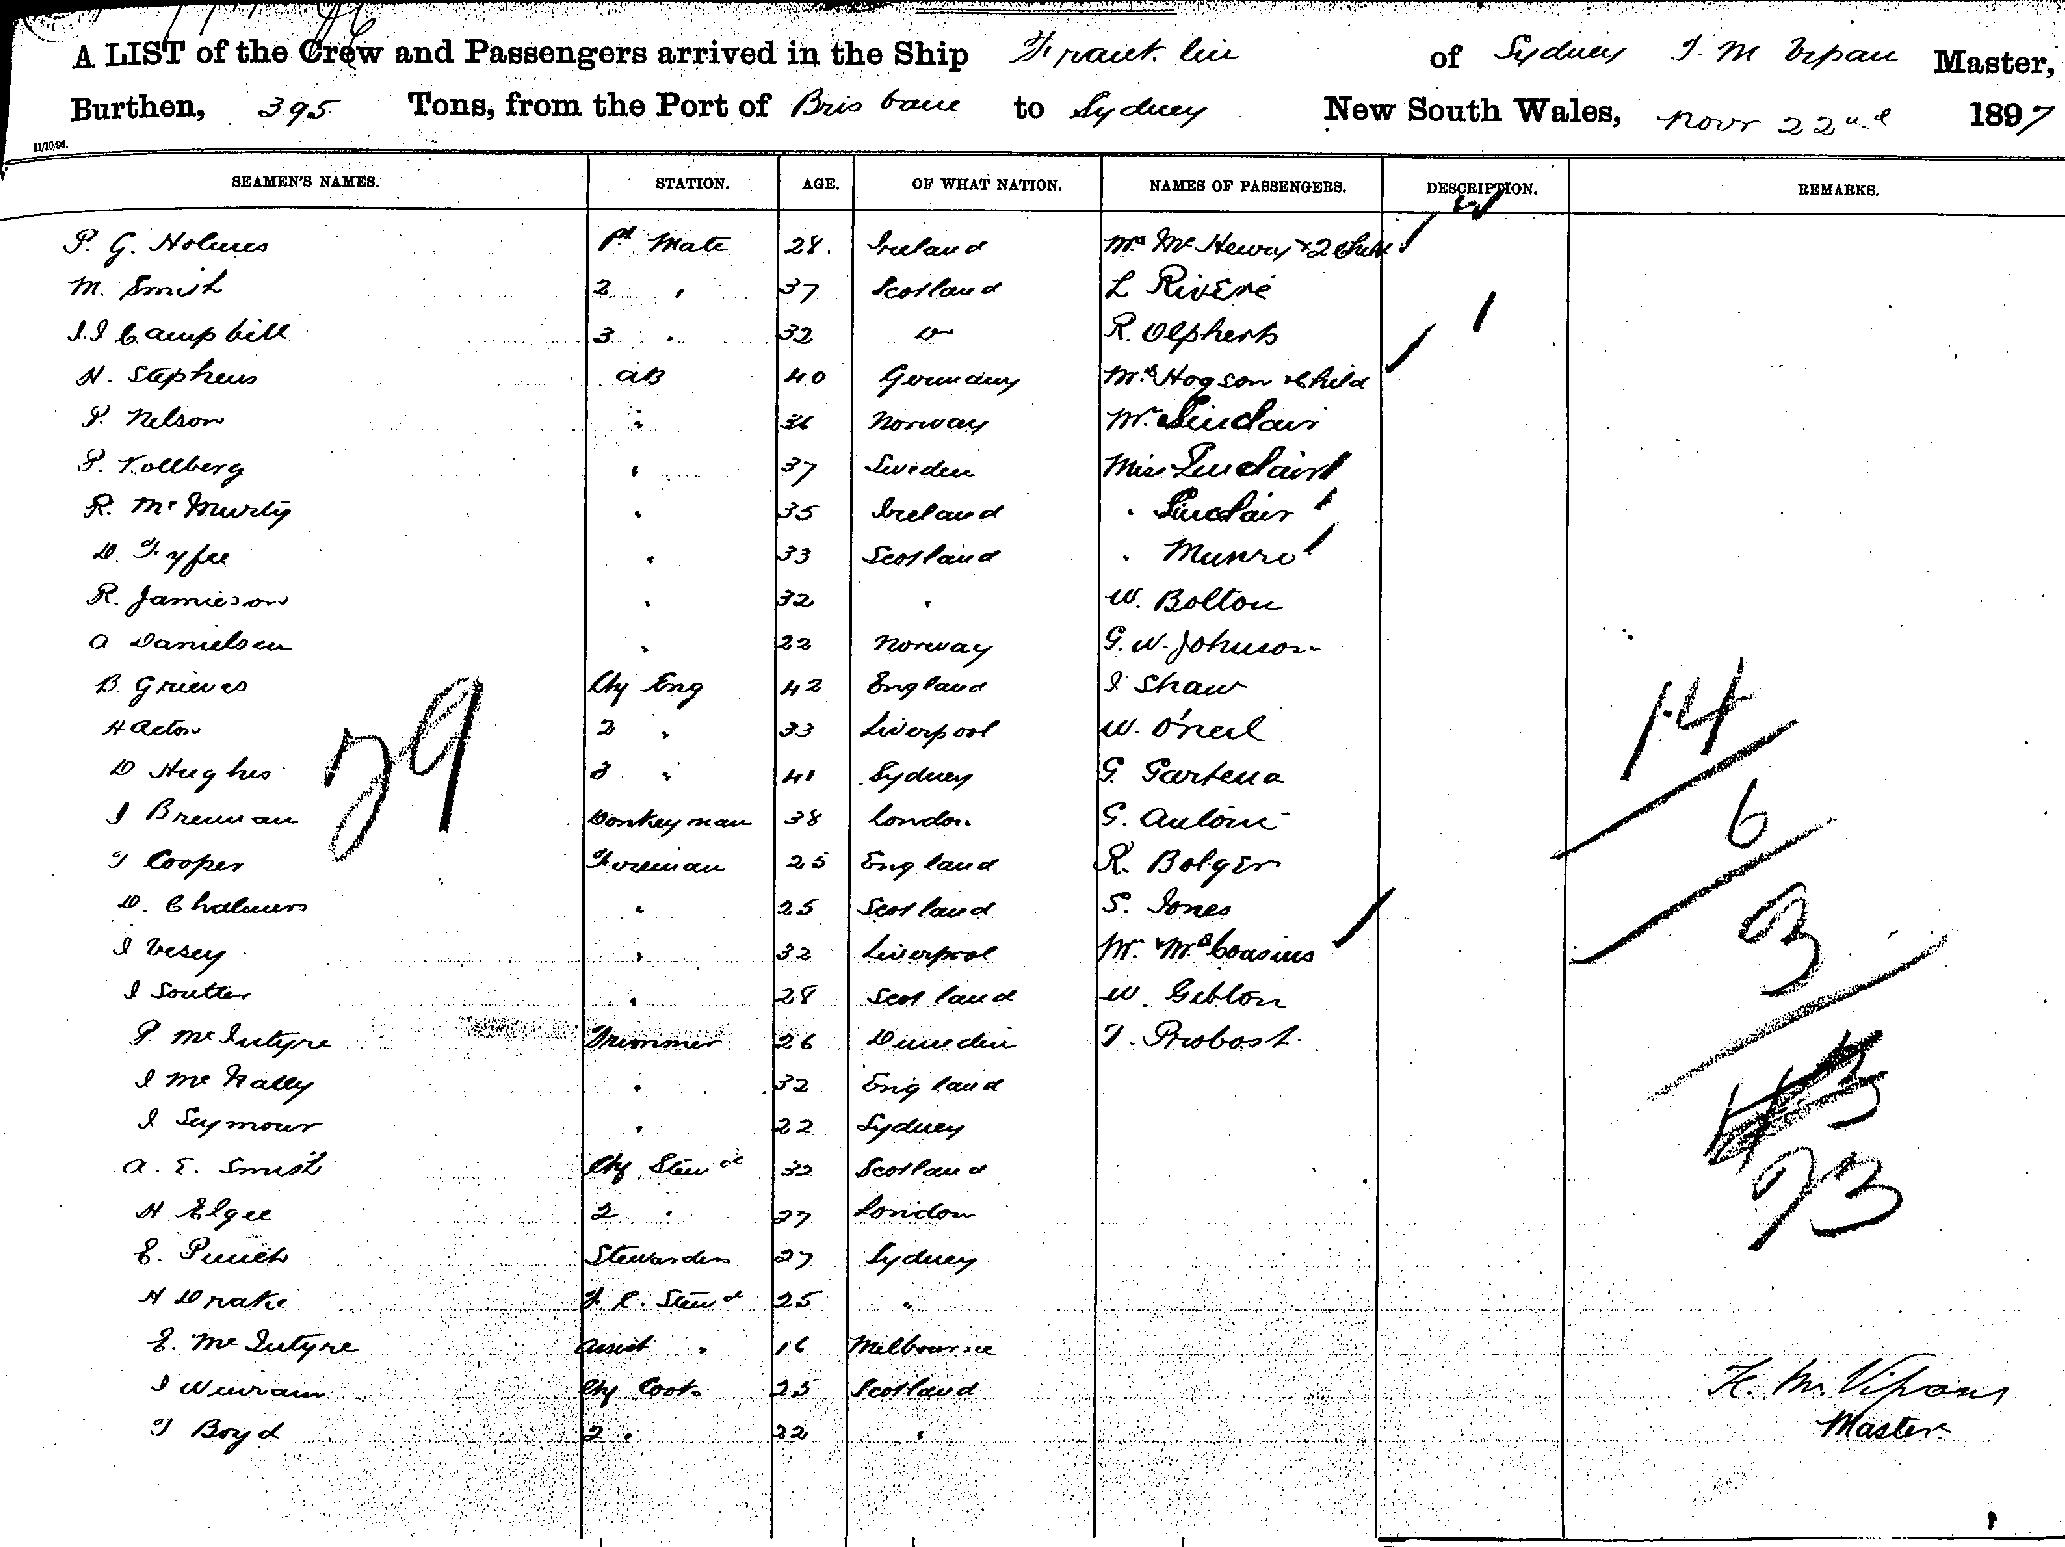 A LIST of the Crew and Passengers arrived in the Ship Franklin of Sydney T. M Vipan Master,
Burthen, 395 Tons, from the Port of Brisbane to Sydney New South Wales, Novr 22nd 1897
11/10/94.
SEAMEN'S NAMES. STATION. AGE. OF WHAT NATION. NAMES OF PASSENGERS. DESCRIPTION. REMARKS.
P. G. Holmes 1st Mate 28. Ireland Mrs Mc Henry & 2 Child
M. Smith 2 " 37 Scotland L Rivere
J. J Campbell 3 " 32 Do R. Olpherts
H. Stephens AB 40 Germany Mrs Hogson & Child
P. Nelson " 36 Norway Mr. Sinclair
P. Kollberg " 37 Sweden Miss Sinclair
R. Mc Murty " 35 Ireland " Sinclair
D. Fyfee " 33 Scotland " Munro
R. Jamieson " 32 " W. Bolton
A Danielsen " 22 Norway G. W. Johnson
B. Grieves Chf Eng 42 England J Shaw
H Acton 2 " 33 Liverpool W. O'neil
D Hughes 3 " 41 Sydney G. Gartena
J Brennan Donkeyman 38 London G. Antoni
T Cooper Fireman 25 England R. Bolger
D. Chalmers " 25 Scotland S. Jones
J Vesey " 32 Liverpool Mr. & Mrs Cousins
J Soutter " 28 Scotland W. Gibton
P McIntyre Trimmer 26 Dunedin T. Probost.
J McNally " 32 England
J Seymour " 22 Sydney
A. E. Smith Chf Stewd 32 Scotland
H Elgee 2 " 27 London
E. Punch Stewardess 27 Sydney
H Drake F. C. Stewd 25 "
E. McIntyre Assist " 16 Melbourne
J Chf Cook 25 Scotland
T Boyd 2 " 22 "
29
14
6
3
93
H. M. Vipan
Master